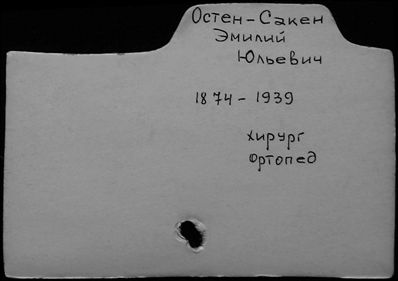 Остен-Сакен
Эмилий
Юльевич
1874-1939
хирург
ортопед